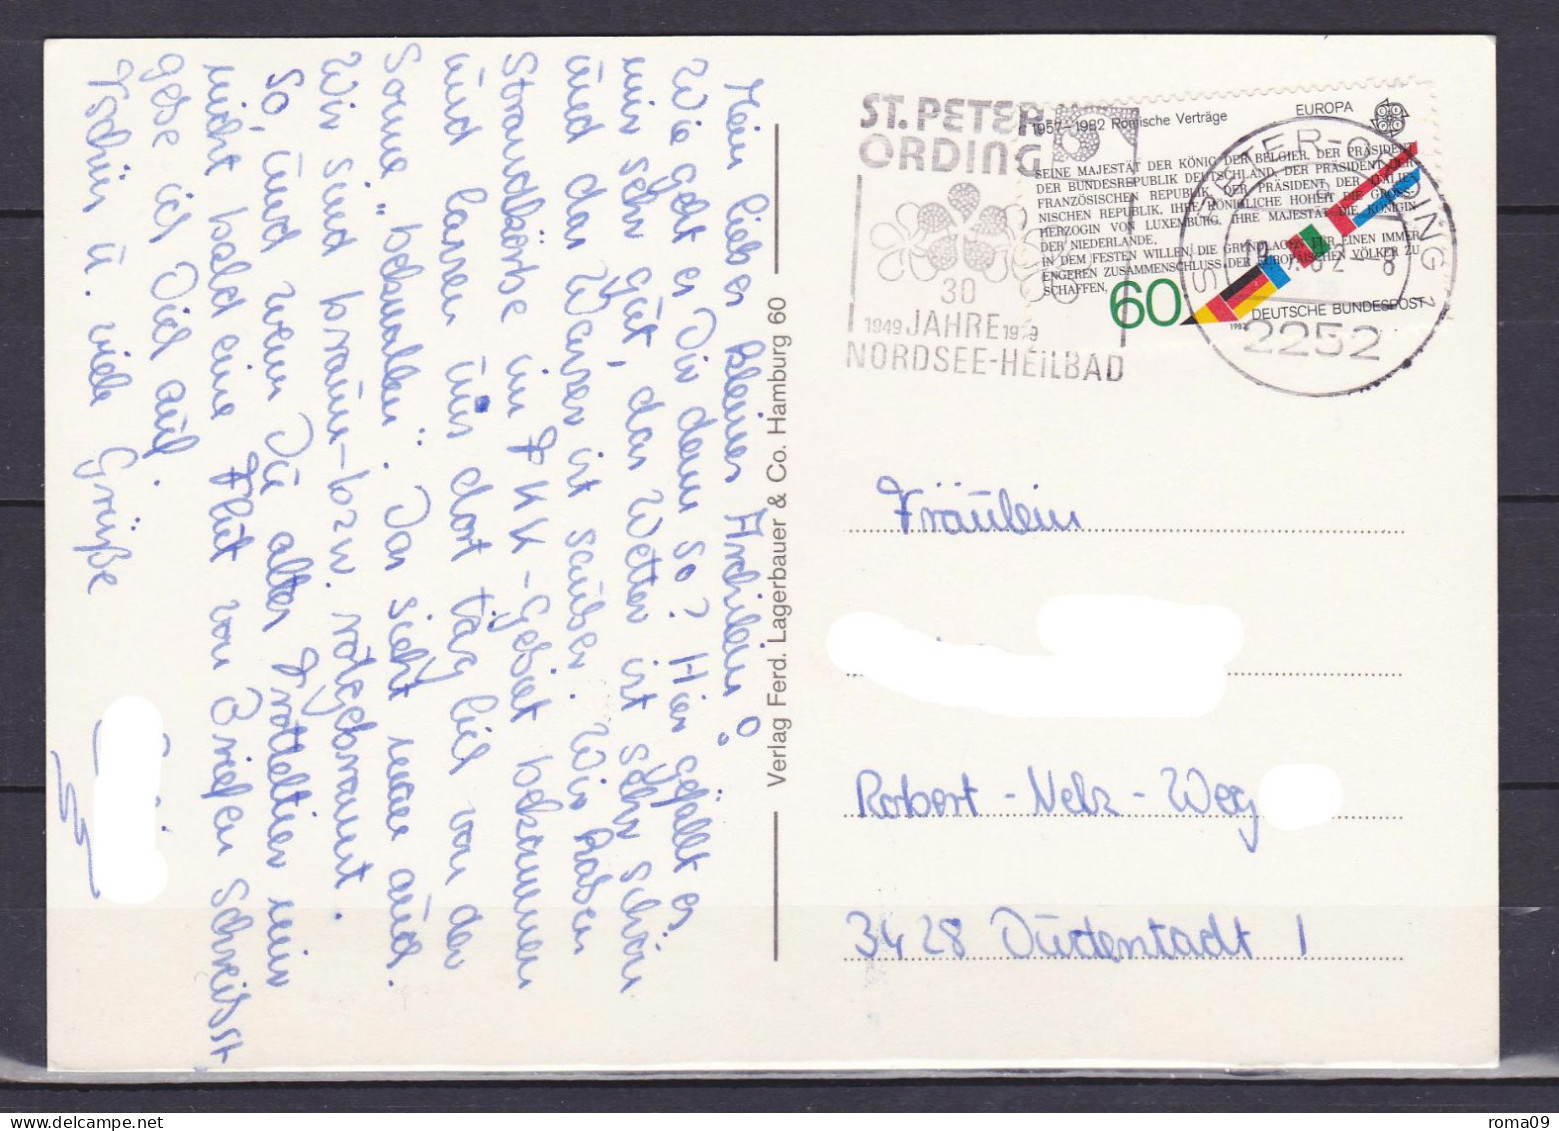 Mein lieber kleiner Archilein!
Wie geht es Dir denn so? Hier gefällt es
mir sehr gut, das Wetter ist sehr schön
und das Wasser ist sauber. Wir haben
Strandkörbe im FKK-Gebiet bekommen
und lassen uns dort täglich von der
Sonne "beknallen". Das sieht man auch.
Wir sind braun- bzw. rotgebrannt.
So, und wenn Du altes Trotteltier mir
nicht bald eine Flut von Briefen schreibst
gebe ich Dich auf.
Tschüs u. viele Grüße
Verlag Ferd. Lagerbauer & Co. Hamburg 60
ST. PETER-
ORDING
30
1949 JAHRE 1979
NORDSEE-HEILBAD
1957–1982 Römische Verträge
EUROPA
SEINE MAJESTÄT DER KÖNIG DER BELGIER, DER PRÄSIDENT
DER BUNDESREPUBLIK DEUTSCHLAND, DER PRÄSIDENT DER
FRANZÖSISCHEN REPUBLIK, DER PRÄSIDENT DER ITALIE-
NISCHEN REPUBLIK, IHRE KÖNIGLICHE HOHEIT DIE GROSS-
HERZOGIN VON LUXEMBURG, IHRE MAJESTÄT DIE KÖNIGIN
DER NIEDERLANDE,
IN DEM FESTEN WILLEN, DIE GRUNDLAGEN FÜR EINEN IMMER
ENGEREN ZUSAMMENSCHLUSS DER EUROPÄISCHEN VÖLKER ZU
SCHAFFEN,
60
1982
DEUTSCHE BUNDESPOST
ST. PETER-ORDING 1
2252
Fräulein
Robert-Nelz-Weg
3428 Duderstadt 1
roma09